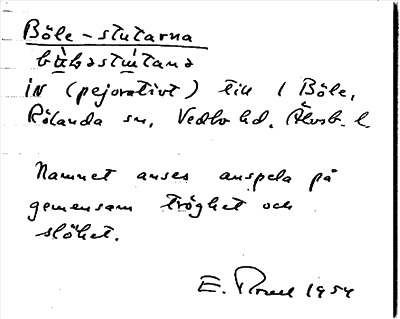 Böle-stutarna
bu̇̀ḷəstu̇́tanə
in (pejorativt) till 1 Böle,
Rölanda sn, Vedbo hd, Älvsb. l.
Namnet anses anspela på
gemensam tröghet och
slöhet.
E. 1954